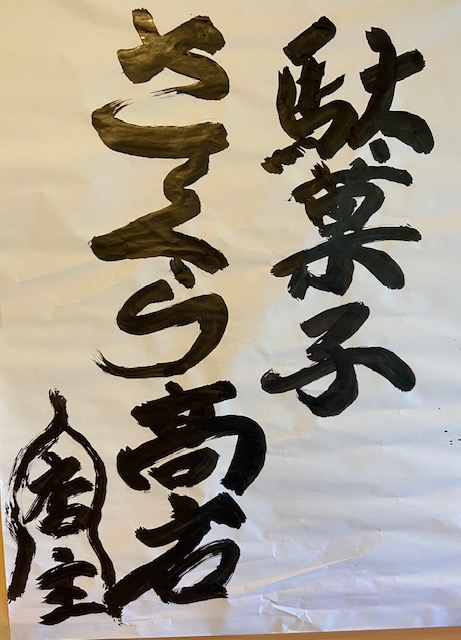 駄菓子
さくら高石
店主